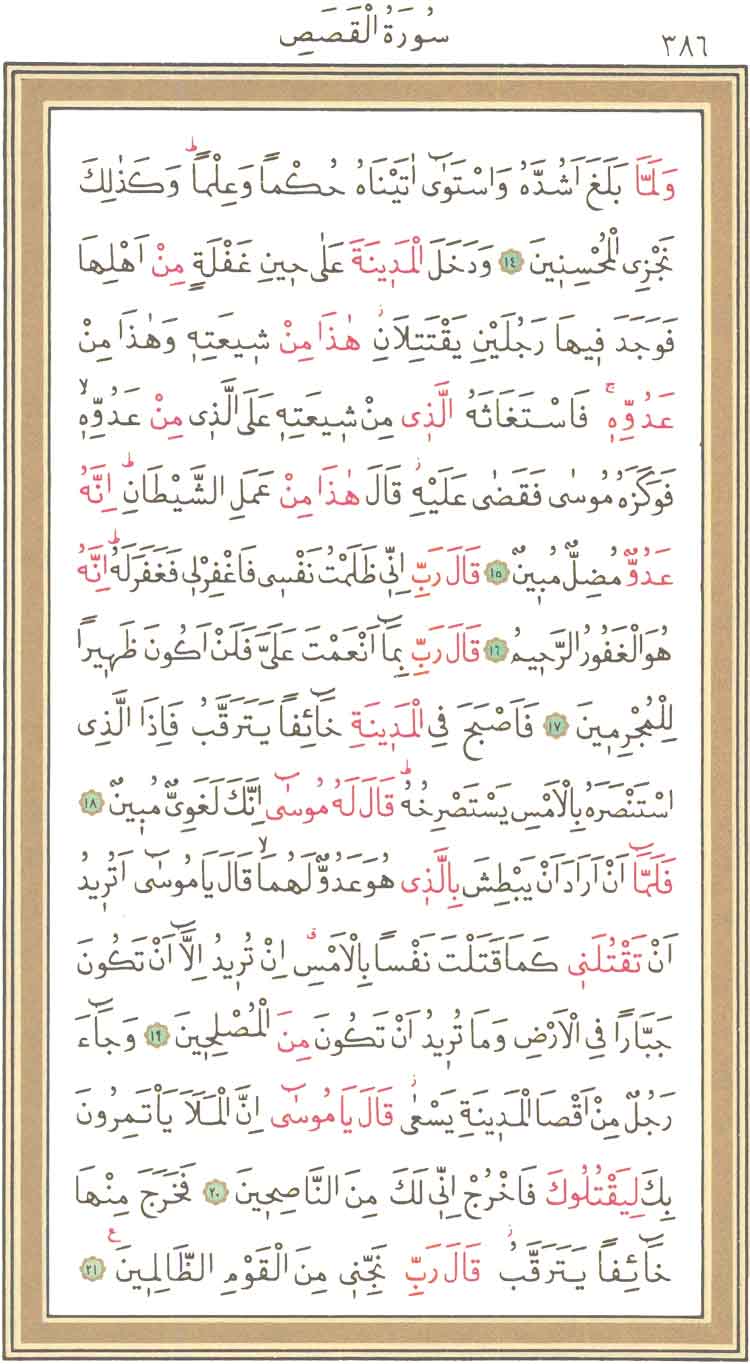 سُورَةُ الْقَصَصِ
٣٨٦
وَلَمَّا بَلَغَ اَشُدَّهُ وَاسْتَوٰٓى اٰتَيْنَاهُ حُكْماً وَعِلْماًۜ وَكَذٰلِكَ
نَجْزِي الْمُحْسِن۪ينَ ﴿١٤﴾ وَدَخَلَ الْمَد۪ينَةَ عَلٰى ح۪ينِ غَفْلَةٍ مِنْ اَهْلِهَا
فَوَجَدَ ف۪يهَا رَجُلَيْنِ يَقْتَتِلَانِۘ هٰذَا مِنْ ش۪يعَتِه۪ وَهٰذَا مِنْ
عَدُوِّه۪ۚ فَاسْتَغَاثَهُ الَّذ۪ي مِنْ ش۪يعَتِه۪ عَلَى الَّذ۪ي مِنْ عَدُوِّه۪ۙ
فَوَكَزَهُ مُوسٰى فَقَضٰى عَلَيْهِۘ قَالَ هٰذَا مِنْ عَمَلِ الشَّيْطَانِۜ اِنَّهُ
عَدُوٌّ مُضِلٌّ مُب۪ينٌ ﴿١٥﴾ قَالَ رَبِّ اِنّ۪ي ظَلَمْتُ نَفْس۪ي فَاغْفِرْ ل۪ي فَغَفَرَ لَهُۜ اِنَّهُ
هُوَ الْغَفُورُ الرَّح۪يمُ ﴿١٦﴾ قَالَ رَبِّ بِمَٓا اَنْعَمْتَ عَلَيَّ فَلَنْ اَكُونَ ظَه۪يراً
لِلْمُجْرِم۪ينَ ﴿١٧﴾ فَاَصْبَحَ فِي الْمَد۪ينَةِ خَٓائِفاً يَتَرَقَّبُ فَاِذَا الَّذِي
اسْتَنْصَرَهُ بِالْاَمْسِ يَسْتَصْرِخُهُۜ قَالَ لَهُ مُوسٰٓى اِنَّكَ لَغَوِيٌّ مُب۪ينٌ ﴿١٨﴾
فَلَمَّٓا اَنْ اَرَادَ اَنْ يَبْطِشَ بِالَّذ۪ي هُوَ عَدُوٌّ لَهُمَاۙ قَالَ يَا مُوسٰٓى اَتُر۪يدُ
اَنْ تَقْتُلَن۪ي كَمَا قَتَلْتَ نَفْساً بِالْاَمْسِۗ اِنْ تُر۪يدُ اِلَّٓا اَنْ تَكُونَ
جَبَّاراً فِي الْاَرْضِ وَمَا تُر۪يدُ اَنْ تَكُونَ مِنَ الْمُصْلِح۪ينَ ﴿١٩﴾ وَجَٓاءَ
رَجُلٌ مِنْ اَقْصَا الْمَد۪ينَةِ يَسْعٰىۘ قَالَ يَا مُوسٰٓى اِنَّ الْمَلَاَ يَأْتَمِرُونَ
بِكَ لِيَقْتُلُوكَ فَاخْرُجْ اِنّ۪ي لَكَ مِنَ النَّاصِح۪ينَ ﴿٢٠﴾ فَخَرَجَ مِنْهَا
خَٓائِفاً يَتَرَقَّبُۘ قَالَ رَبِّ نَجِّن۪ي مِنَ الْقَوْمِ الظَّالِم۪ينَ۟ ﴿٢١﴾